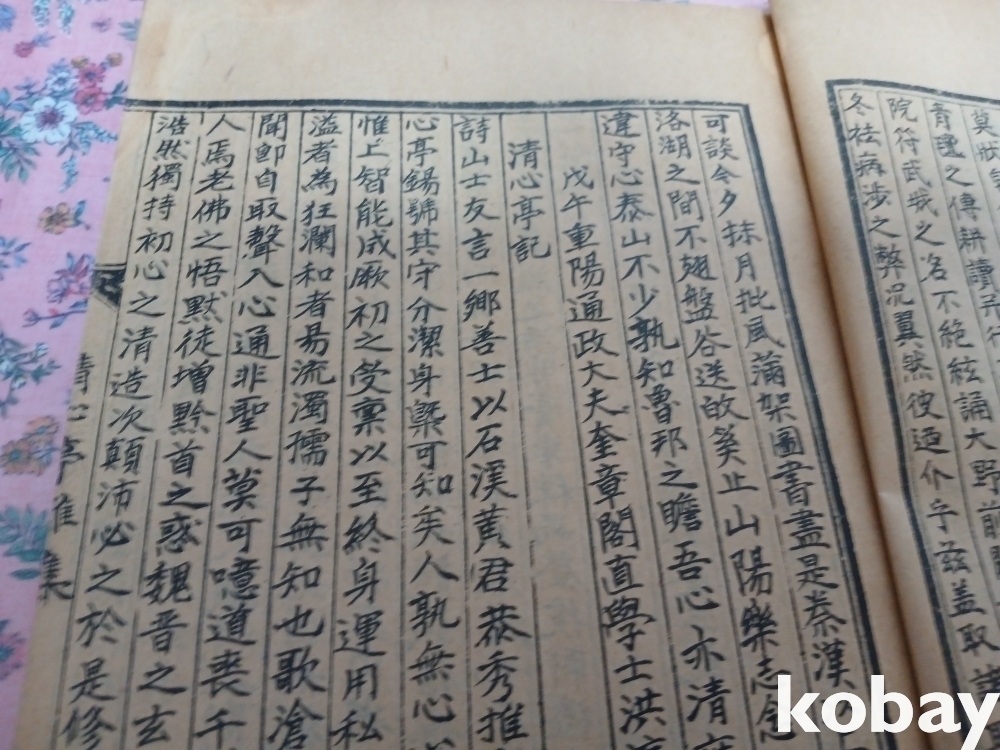 莫狀
青氊之傳耕讀
不絶絃誦大野前
院符武城之
名不絶絃誦大野前
冬祛病涉之弊况翼然彼迺仆乎茲盖取
可談今夕抹月批風滿架圖書盡是秦漢
洛湖之間不翅盤谷送故奚止山陽樂志
違守心泰山不少孰知魯邦之瞻吾心亦清
戊午重陽通政大夫奎章閣直學士洪
清心亭記
詩山士友言一鄉善士以石溪黃君恭秀推
心亭錫號其守分潔身槩可知矣人孰無心
惟上智能成厥初之受稟以至終身運用私
溢者為狂瀾和者易流濁孺子無知也歌滄
聞卽自取聲入心通非聖人莫可噫道喪千
人焉老佛之悟默徒增黔首之惑魏晋之玄
浩然獨持初心之清造次顚沛必之於是修
清心亭雅集
kobay